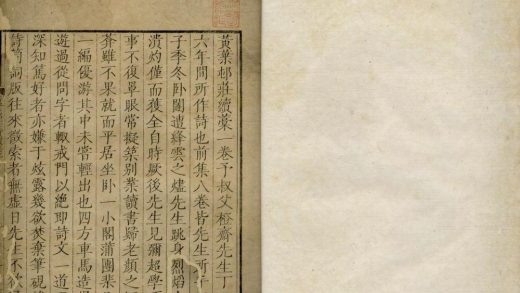 黃葉邨莊續藁一卷予叔父橙齋先生丁
六年間所作詩也前集八卷皆先生所手
子季冬卧閣遭絳雲之燼先生跳身烈熖
潰灼僅而獲全自時厥後先生見彌超學
事不復罣眼常擬築别業讀書歸老顔之
莽雖不果就而平居坐卧一小閣蒲團棐
一編優游其中未嘗輕出也四方車馬造
遊過從問字者輒戒門以絶即詩文一道
深知篤好者亦嫌于衒露幾欲焚棄筆硯
詩筒詞版往來徵索者無虚日先生不欲